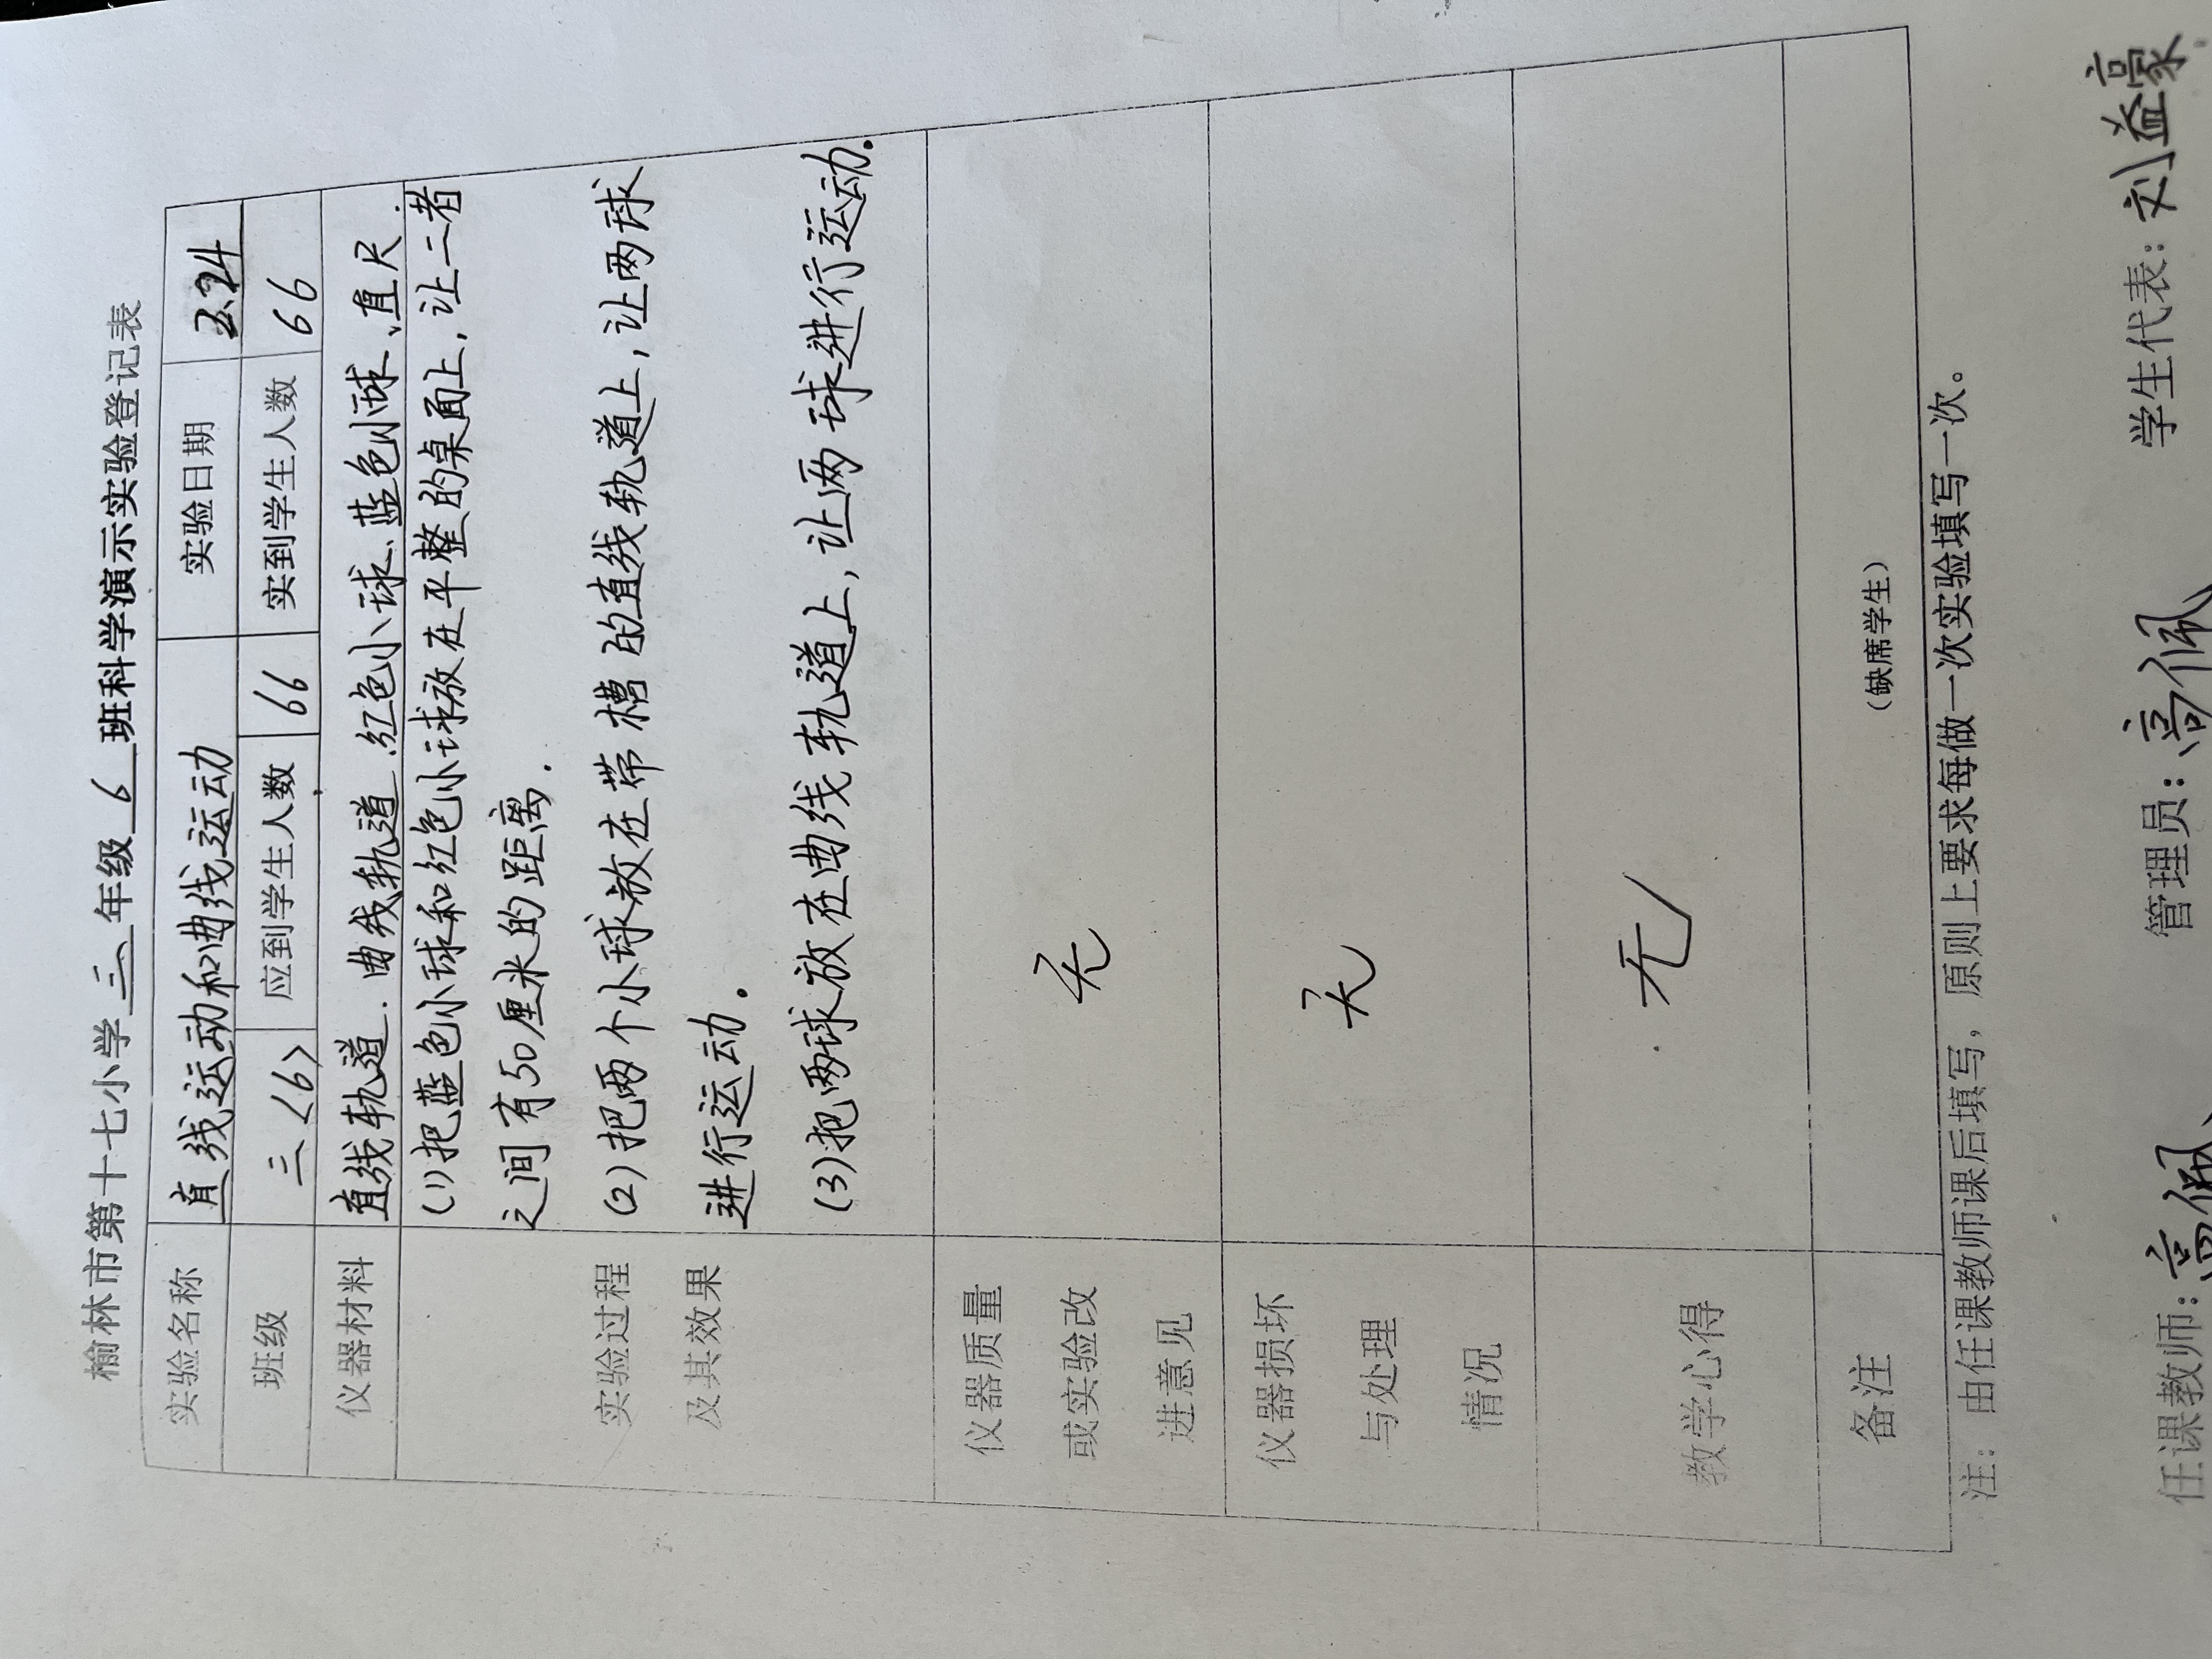 榆林市第十七小学三年级6班科学演示实验登记表
实验名称 直线运动和曲线运动 实验日期 3.24
班级 三<6> 应到学生人数 66 实到学生人数 66
仪器材料 直线轨道.曲线轨道.红色小球.蓝色小球、直尺.
(1)把蓝色小球和红色小球放在平整的桌面上,让二者
之间有50厘米的距离.
实验过程 (2)把两个小球放在带槽的直线轨道上,让两球
及其效果 进行运动.
(3)把两球放在曲线轨道上,让两球进行运动.
仪器质量
或实验改 无
进意见
仪器损坏
与处理 无
情况
教学心得 无
备注 （缺席学生）
注：由任课教师课后填写，原则上要求每做一次实验填写一次。
任课教师：高佩 管理员：高佩 学生代表：刘益豪